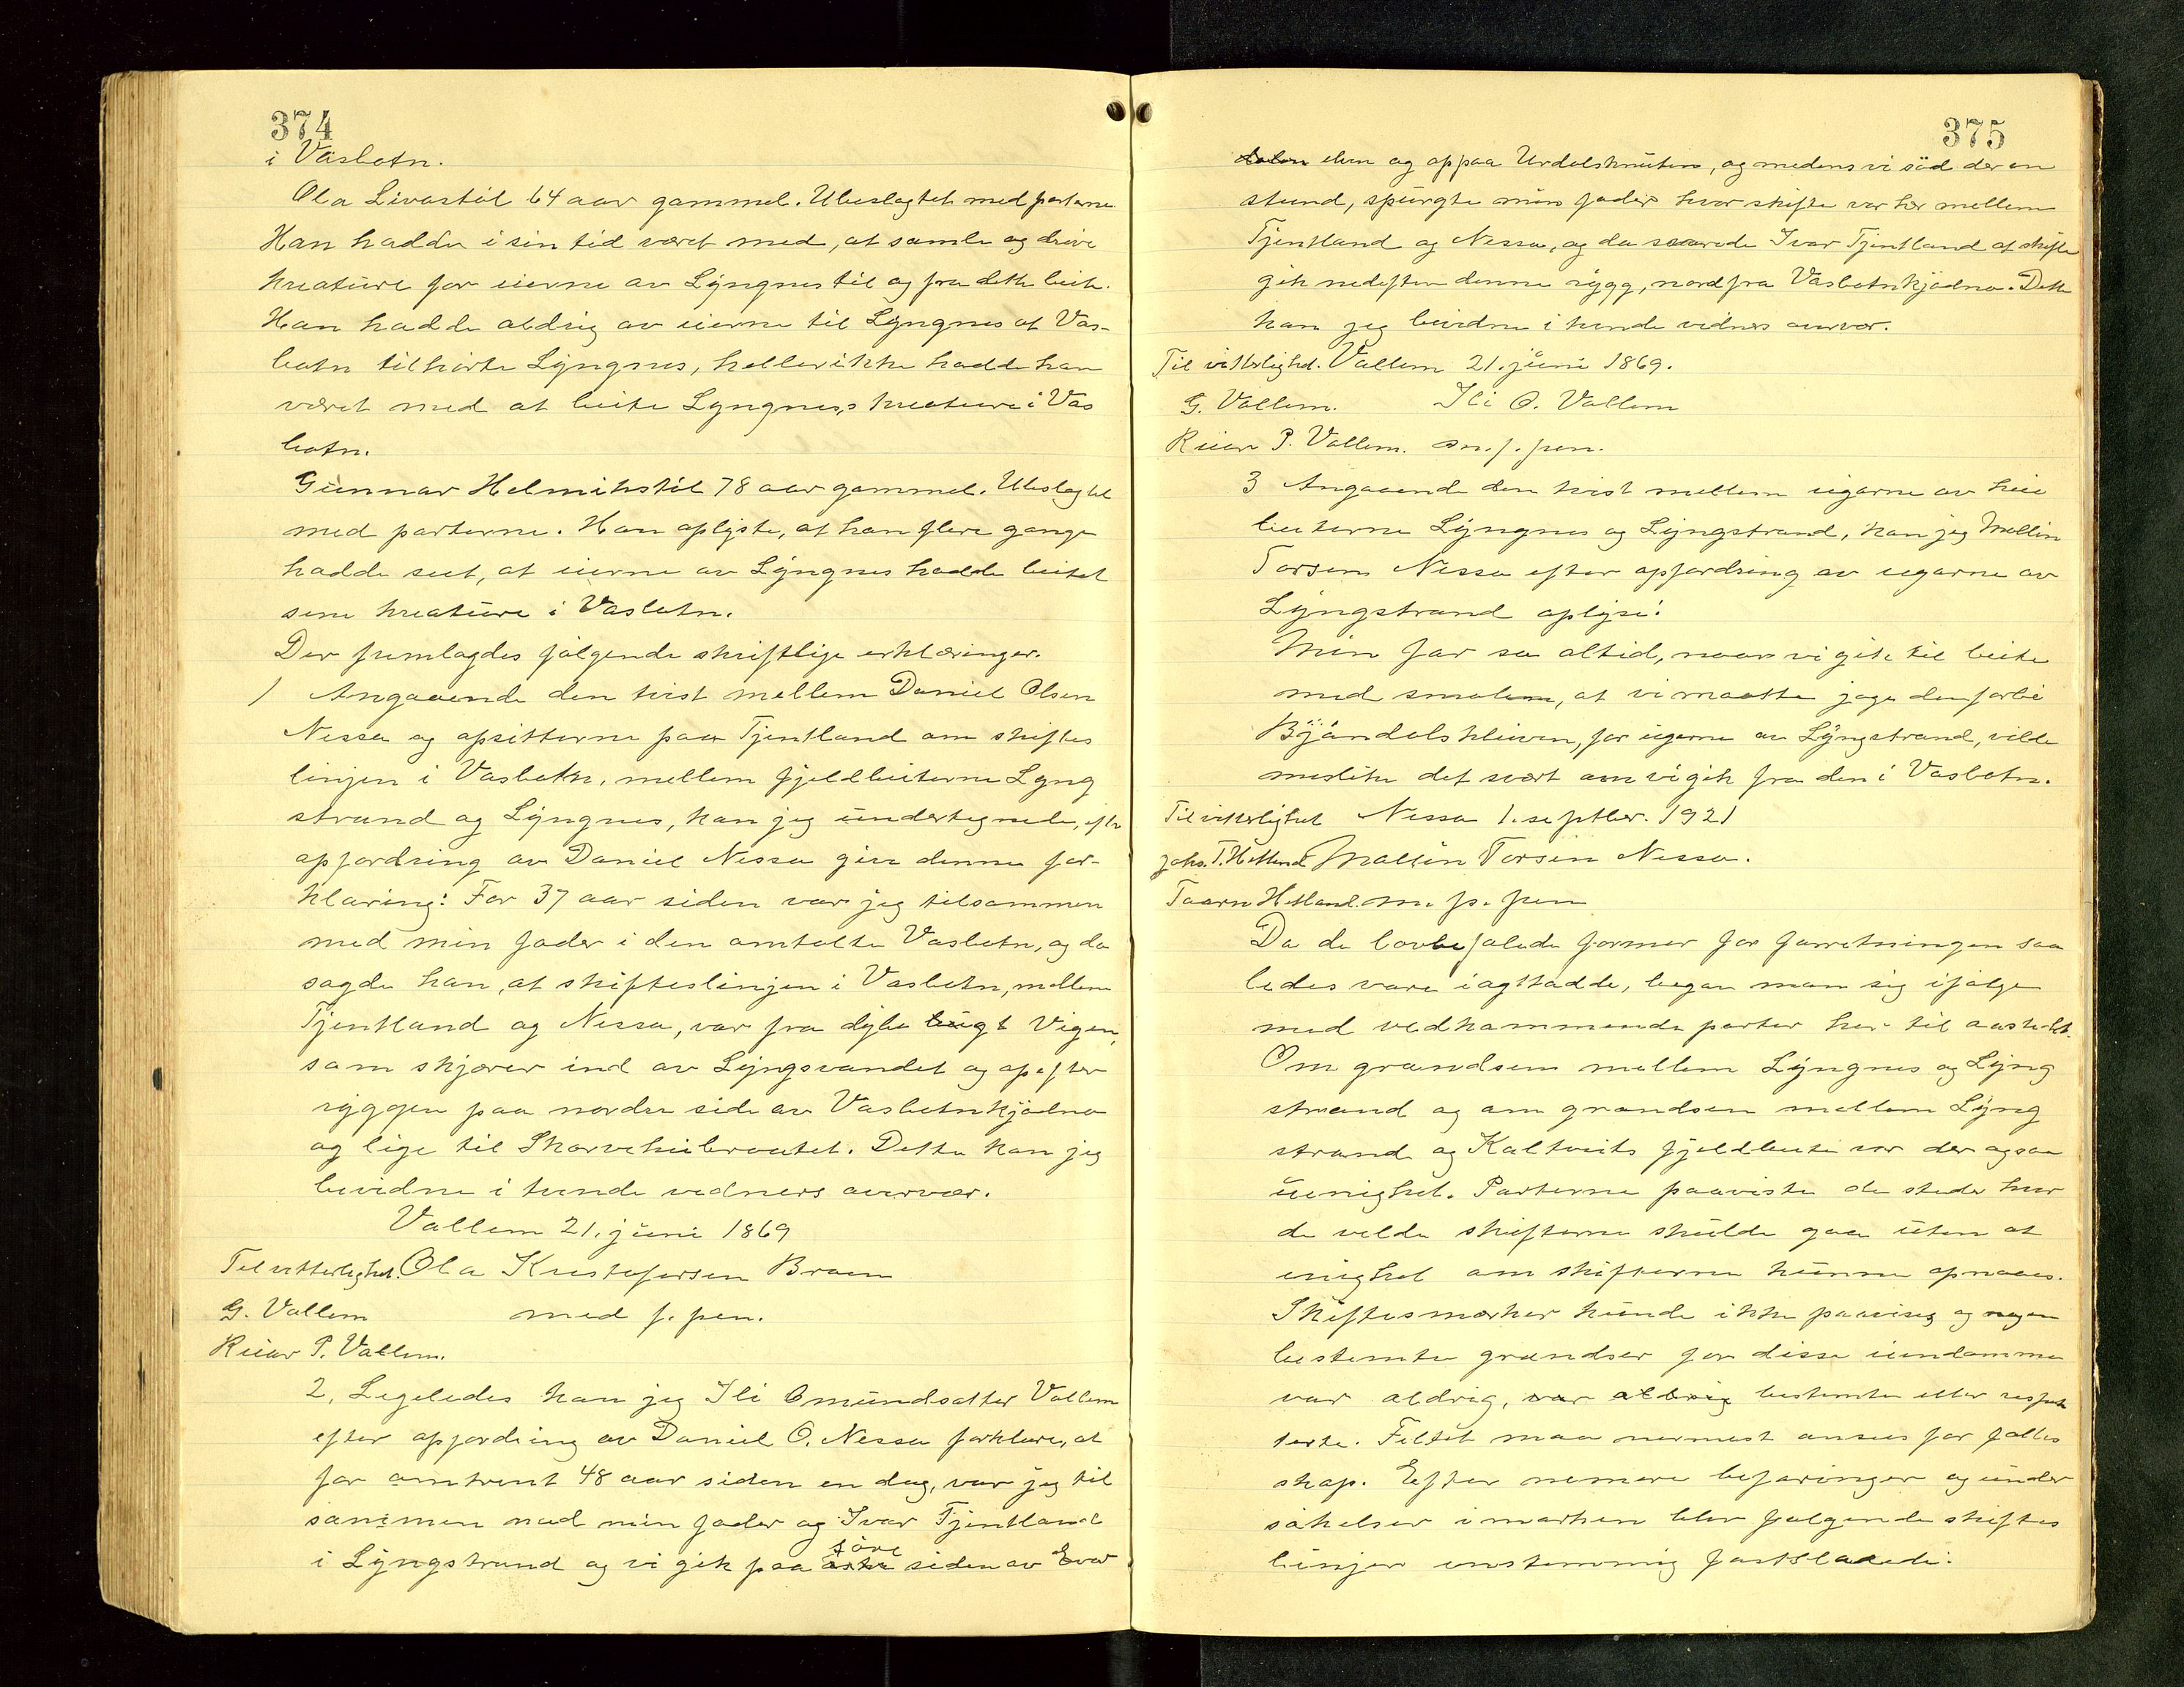 374
i Vasbotn.
Ola Livastöl 64 aar gammel. Ubeslagtet med parterne
Han hadde i sin tid været med, at samle og drive
kreatüre for eierne av Lyngnes til og fra dette beite.
Han hadde aldrig av eierne til Lyngnes at Vas-
botn tilhörte Lyngnes, heller ikke hadde han
været med at beite Lyngnes,s kreature i Vas
botn.
Gunnar Helmikstöl 78 aar gammel. Ubeslagtet
med parterne. Han oplyste, at han flere gange
hadde seet, at eierne av Lyngnes hadde beitet
sine kreatüre i Vasbotn.
Der fremlagdes fölgende skriftlige erklæringer.
1 Angaaende den tvist mellem Daniel Olsen
Nessa og opsitterne paa Tjentland om skiftes
linjen i Vasbotn, mellem fjeldbeiterne Lyng
strand og Lyngnes, kan jeg undertegnede, efter
opfordring av Daniel Nessa give denne for-
klaring: For 37 aar siden var jeg tilsammen
med min fader i den omtalte Vasbotn, og da
sagde han, at skifteslinjen i Vasbotn, mellem
Tjentland og Nessa, var fra dybe bugt Vigen,
som skjærer ind av Lyngsvandet og op efter
ryggen paa nordre side av Vasbotnkjödna
og lige til Skorveheibrautet. Dette kan jeg
bevidne i tvende vedners overvær.
Vallem 21. juni 1869
Til vitterlighet. Ola Kristofersen Braen
G. Vallem med f. pen.
Reier P. Vallem.
2, Legeledes kan jeg Ili Omundsatter Vallem
efter opfordring av Daniel O. Nessa forklare, at
for omtrent 48 aar siden en dag, var jeg til
sammen med min fader og Ivar Tjentland
i Lyngstrand og vi gik paa östre söre siden av Ever
375
dalen elven og op paa Urdalsknuten, og medens vi sad der en
stund, spurgte min fader hvor skifte var her mellem
Tjentland og Nessa, og da svarede Ivar Tjentland at skifte
gik nedefter denne rygg, nord fra Vasbotnkjödna. Dette
kan jeg bevidne i tvende vidners overvær.
Til vitterlighed. Vallem 21. juni 1869.
G. Vallem. Ili O. Vallem
Reier P. Vallem. m. f. pen.
3 Angaaende den tvist mellem eigarne av heie
beiterne Lyngnes og Lyngstrand, kan jeg Mallin
Torsen Nessa efter opfordring av eigarne av
Lyngstrand oplyse:
Min far sa altid, naar vi gik til beite
med smalen, at vi maatte jage den forbi
Björndalskleiven, for eigerne av Lyngstrand, vilde
mislike det svært om vi gik fra den i Vasbotn.
Til vitterlighet Nessa 1. septber. 1921
Johs. T. Hetland Mallin Torsen Nessa.
Taarn Hetland. m. p. pen
Da de lovbefalede former for forretningen saa
ledes vare iagttadde, begav man sig ifölge
med vedkommende parter her til aastedet.
Om grændsen mellem Lyngnes og Lyng
strand og om grændsen mellem Lyng
strand og Kaltveits fjeldbeite var der ogsaa
uenighet. Parterne paaviste de steder hvor
de vilde skifterne skulde gaa uten at
enighet om skifterne kunne opnaaes.
Skiftesmærker kunde ikke paavises og nogen
bestemte grændser for disse eiendomme
var aldrig, var aldrig bestemte eller respek
terte. Feltet maa nermest ansees for fælles
skap. Efter nermere befaringer og under
sökelser i marken blev fölgende skiftes
linjer enstemmig fastslaaede: